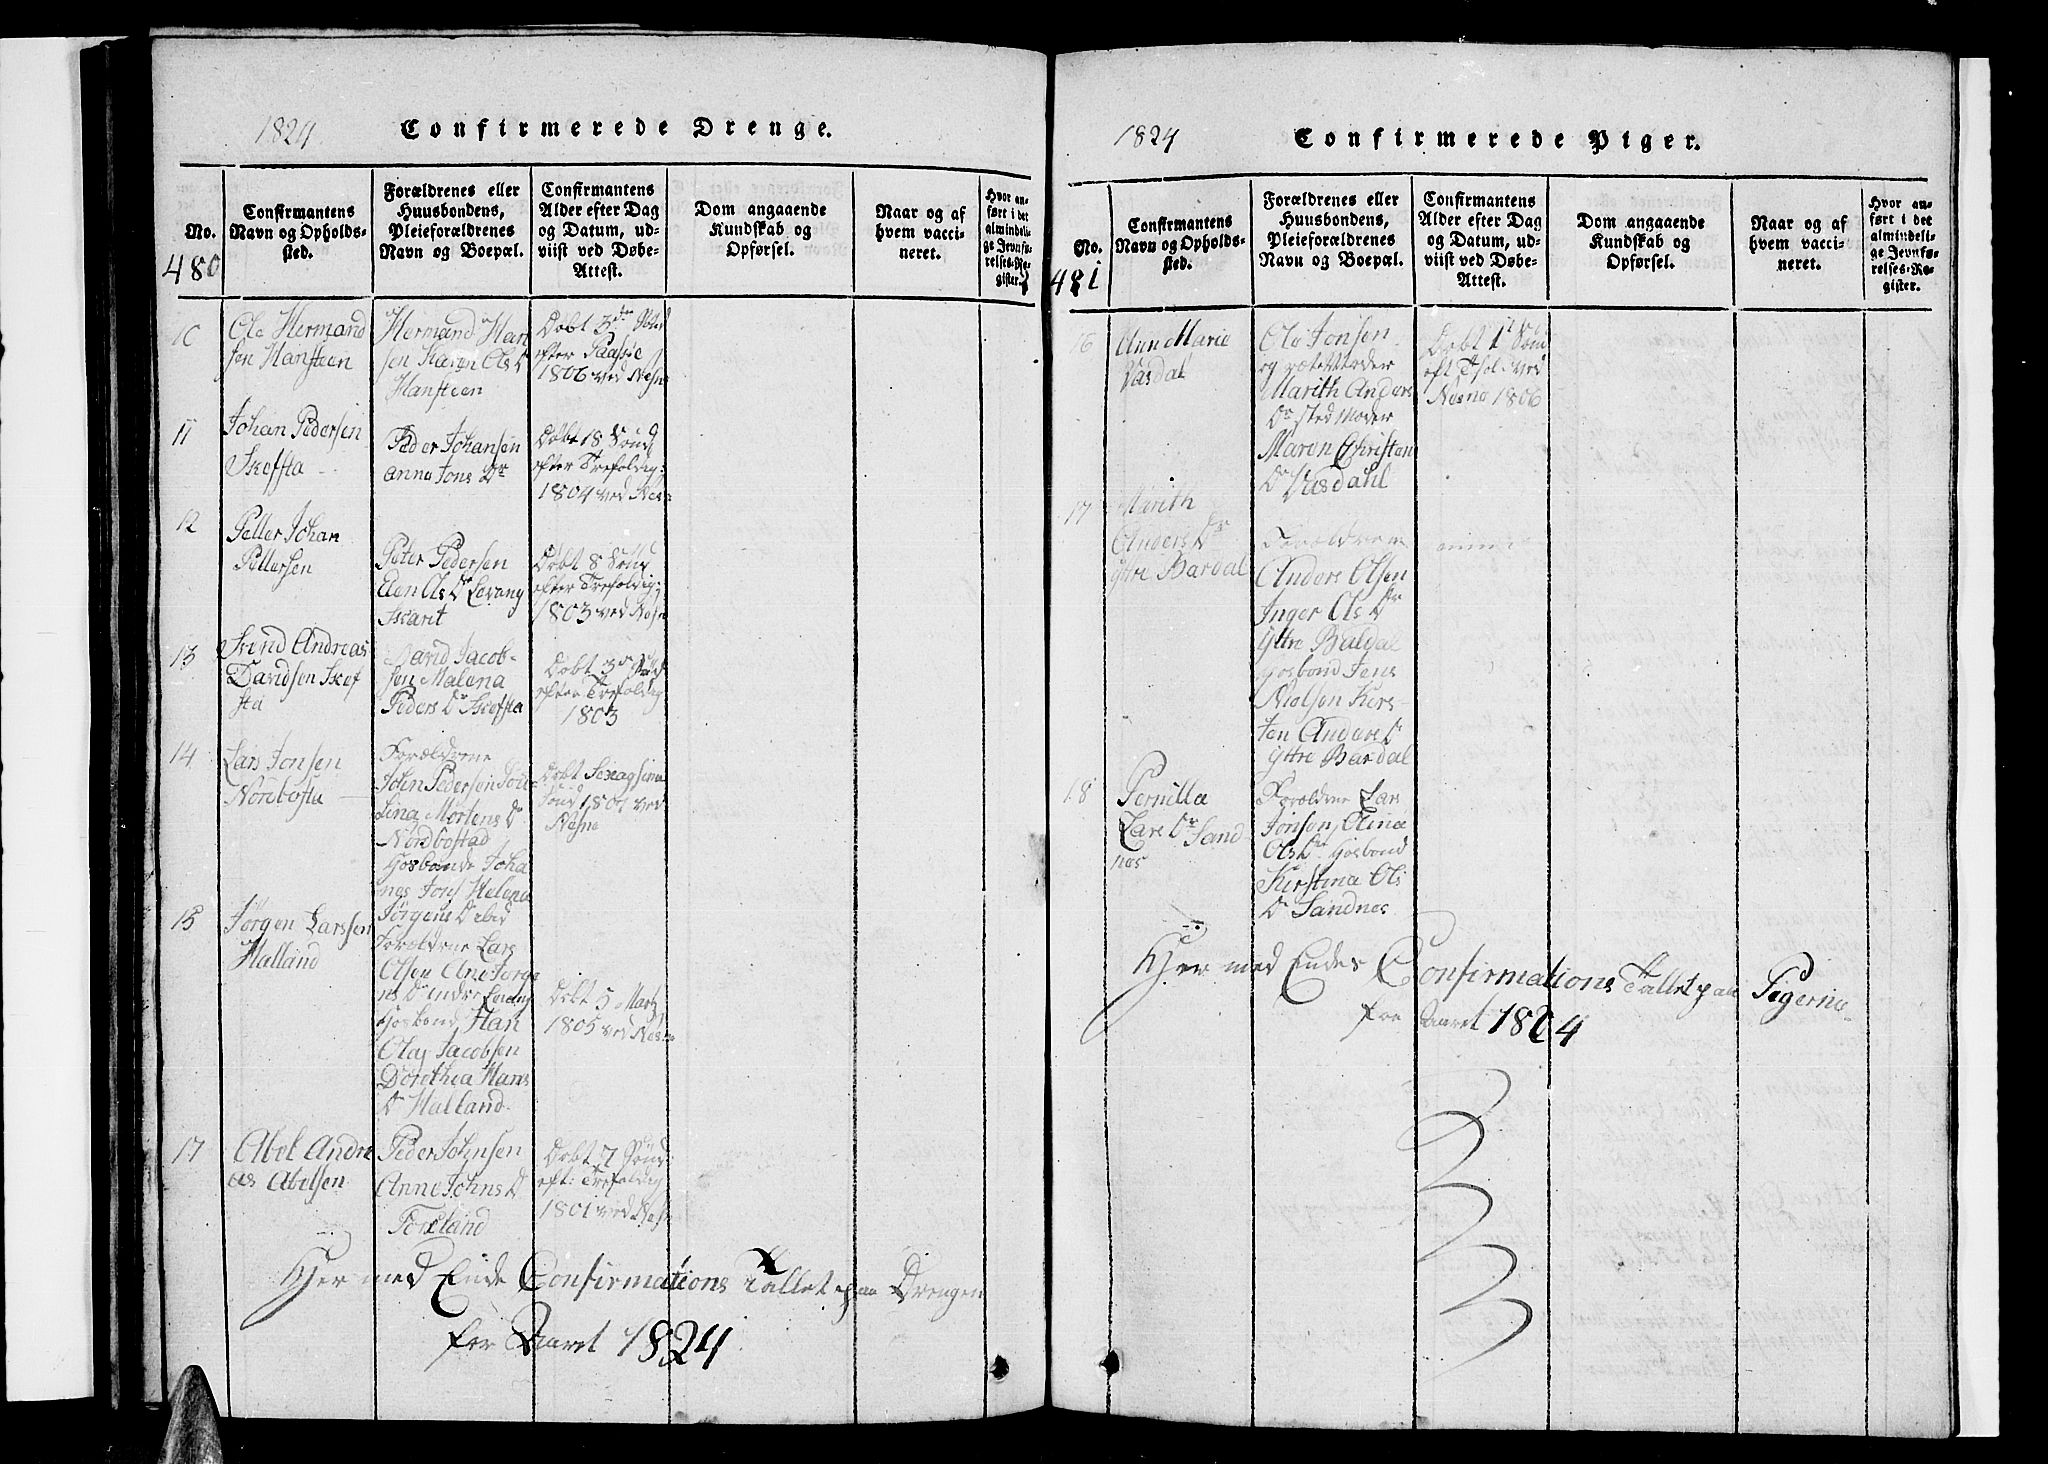 1824 Confirmerede Drenge.
No.
480
Confirmantens
Navn og Opholds-
sted.
Forældrenes eller
Huusbondens,
Pleieforældrenes
Navn og Boepæl.
Confirmantens
Alder efter Dag
og Datum, ud-
viist ved Døbe-
Attest.
Dom angaaende
Kundskab og
Opførsel.
Naar og af
hvem vacci-
neret.
Hvor an-
ført i det
almindeli-
ge Jevnfø-
relses-Re-
gister.
10
Ole Hermand
sen Hansteen
Hermand Han
sen Karen Ols D
Hansteen
Døbt 3die
efter Paaske
1806 ved Nesne
11
Johan Pedersen
Skefsta
Peder Johansen
Anna Jons Dr
Døbt 18 Sønd
efter Trefoldig:
1804 ved Nes-
12
Petter Johan
Pettersen
Peter Pedersen
Aen Ols Dr Levang
Døbt 8 Sønd
efter Trefoldig:
1803 ved Nesne
13
Svend Andreas
Davidsen Skef
sta
David Jacob-
sen Malena
Peders Dr Skefsta
Døbt 3die
efter Trefoldig
1803
14
Lars Jonsen
Nordbosta
Forældrene
John Pedersen
Mortens Dr
Nordbostad
Hosbonde Joha
nes Jons Helena
Jørgens D ibid
Døbt Sexagsima
Sønd 1807 ved
Nesne
15
Jørgen Larssen
Halland
Forældrene Lars
Olsen Ane Jørge
ns D indre Levang
Hosbond Han
Olaj Jacobsen
Dorothea Hans
D Halland
Døbt 5 Martz
1805 ved Nesne
17
Abel Andre
as Abelsen
Peder Johnsen
Anne Johns D
Forsland
Døbt 7 Sønd
eft: Trefoldig
1801 ved Nesn
Hjer med Ende Confirmations Tallet paa Drengen
for Aaret 1824
1824 Confirmerede Piger.
No.
481
Confirmantens
Navn og Opholds-
sted.
Forældrenes eller
Huusbondens,
Pleieforældrenes
Navn og Boepæl.
Confirmantens
Alder efter Dag
og Datum, ud-
viist ved Døbe-
Attest.
Dom angaaende
Kundskab og
Opførsel.
Naar og af
hvem vacci-
neret.
Hvor an-
ført i det
almindeli-
ge Jevnfø-
relses-Re-
gister.
16
Ann Marie
Vasdal
Ole Jonsen
og
Marith Anders
Dr sted Moder
Maren Christen
Dr Vasdahl
Døbt 1st Søn
eft ved
Nesne 1806
17
Marith
Anders Dr
Yttre Bardal
Forældrene
Anders Olsen
Inger Ols Dr
Yttre Baldal
Hosbond Jens
Nielsen Kers-
ten Anders D
Yttre Bardal
18
Pernilla
Lars Dr Sand
nes
Forældrene Lars
Jonsen, Elina
Ols Dr Hosbond
Kirstina Ols
Dr Sandnes
Hjer med Endes Confirmations Tallet paa Pigerne
for Aaret 1824